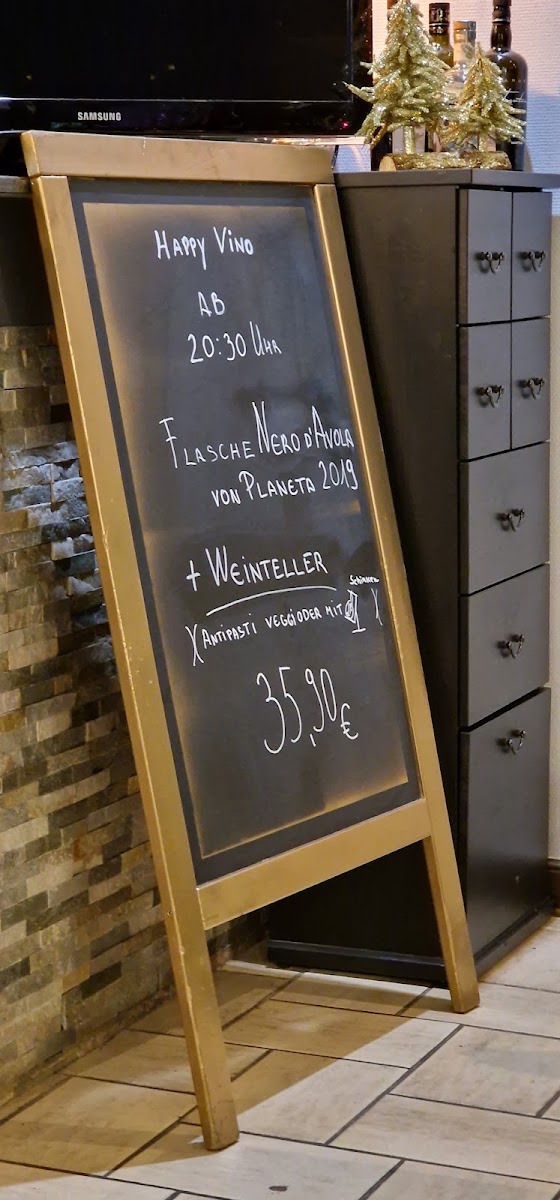 SAMSUNG
HAPPY VINO
AB
20:30 UHR
FLASCHE NERO D'AVOLA
VON PLANETA 2019
+ WEINTELLER
Schinken
(ANTIPASTI VEGGI ODER MIT )
35,90€